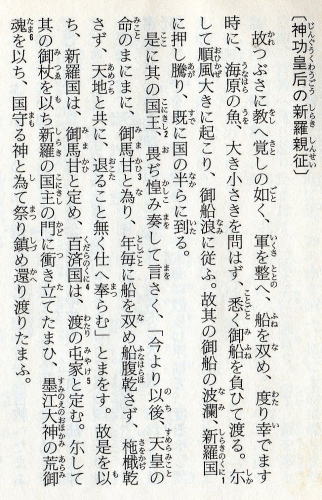 〔神功皇后の新羅親征〕
故つぶさに教へ覚しの如く、軍を整へ、船を双め、度り幸でます
時に、海原の魚、大き小さきを問はず、悉く御船を負ひて渡る。尓
して順風大きに起こり、御船浪に従ふ。故其の御船の波瀾、新羅国
に押し騰り、既に国の半らに到る。
是に其の国王、畏ぢ惶み奏して言さく、「今より以後、天皇の
命のまにまに、御馬甘と為り、年毎に船を双め船腹乾さず、柂檝乾
さず、天地と共に、退ること無く仕へ奉らむ」とまをす。故是を以
ち、新羅国は、御馬甘と定め、百済国は、渡の屯家と定む。尓して
其の御杖を以ち新羅の国主の門に衝き立てたまひ、墨江大神の荒御
魂を以ち、国守る神と為て祭り鎮め還り渡りたまふ。